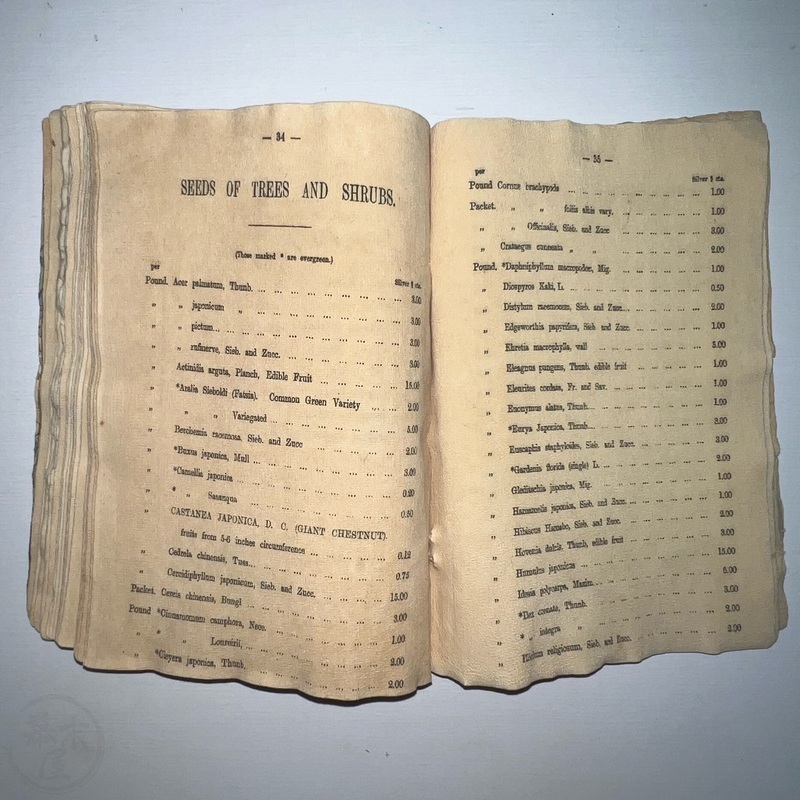 — 34 —
SEEDS OF TREES AND SHRUBS.
(Those marked * are evergreen.)
per Silver $ cts.
Pound. Acer palmatum, Thunb. ... 3.00
„ „ japonicum „ ... 3.00
„ „ pictum ... 3.00
„ „ rufinerve, Sieb. and Zucc. ... 3.00
„ Actinidia arguta, Planch, Edible Fruit ... 15.00
„ *Aralia Sieboldi (Fatsia). Common Green Variety ... 2.00
„ „ „ Variegated ... 5.00
„ Berchemia racemosa, Sieb. and Zucc ... 2.00
„ *Buxus japonica, Mull ... 3.00
„ *Camellia japonica ... 0.20
„ * „ Sasanqua ... 0.50
„ CASTANEA JAPONICA, D. C. (GIANT CHESTNUT).
fruits from 5-6 inches circumference ... 0.12
„ Cedrela chinensis, ... 0.75
„ Cercidiphyllum japonicum, Sieb. and Zucc. ... 15.00
Packet. Cercis chinensis, Bungl ... 3.00
Pound *Cinnamomum camphora, Nees. ... 1.00
„ * „ Loureirii, ... 2.00
„ *Cleyera japonica, Thunb. ... 2.00
— 35 —
per Silver $ cts.
Pound Cornus brachypoda ... 1.00
Packet. „ „ foliis albis vary. ... 1.00
„ „ Officinalis, Sieb. and Zucc ... 3.00
„ Crataegus cuneata „ „ ... 2.00
Pound. *Daphniphyllum macropodon, Mig. ... 1.00
„ Diospyros Kaki, L. ... 0.50
„ Distylum racemosum, Sieb. and Zucc. ... 2.00
„ Edgeworthia papyrifera, Sieb and Zucc. ... 1.00
„ Ehretia macrophylla, wall ... 5.00
„ Eleagnus pungens, Thunb. edible fruit ... 1.00
„ Eleurites cordata, Fr. and Sav. ... 1.00
„ Euonymus alatus, Thunb. ... 1.00
„ *Eurya Japonica, Thunb. ... 3.00
„ Euscaphis staphyloides, Sieb. and Zucc. ... 3.00
„ *Gardenia florida (single) L. ... 2.00
„ Gleditschia japonica, Mig. ... 1.00
„ Hamamelis japonica, Sieb. and Zucc. ... 1.00
„ Hibiscus Hamabo, Sieb. and Zucc. ... 2.00
„ Hovenia dulcis, Thunb, edible fruit ... 3.00
„ Humulus japonicus ... 15.00
„ Idesia polycarpa, Maxim. ... 6.00
„ *Ilex crenata, Thunb. ... 3.00
„ * „ integra „ ... 2.00
„ religiosum, Sieb. and Zucc. ... 2.00